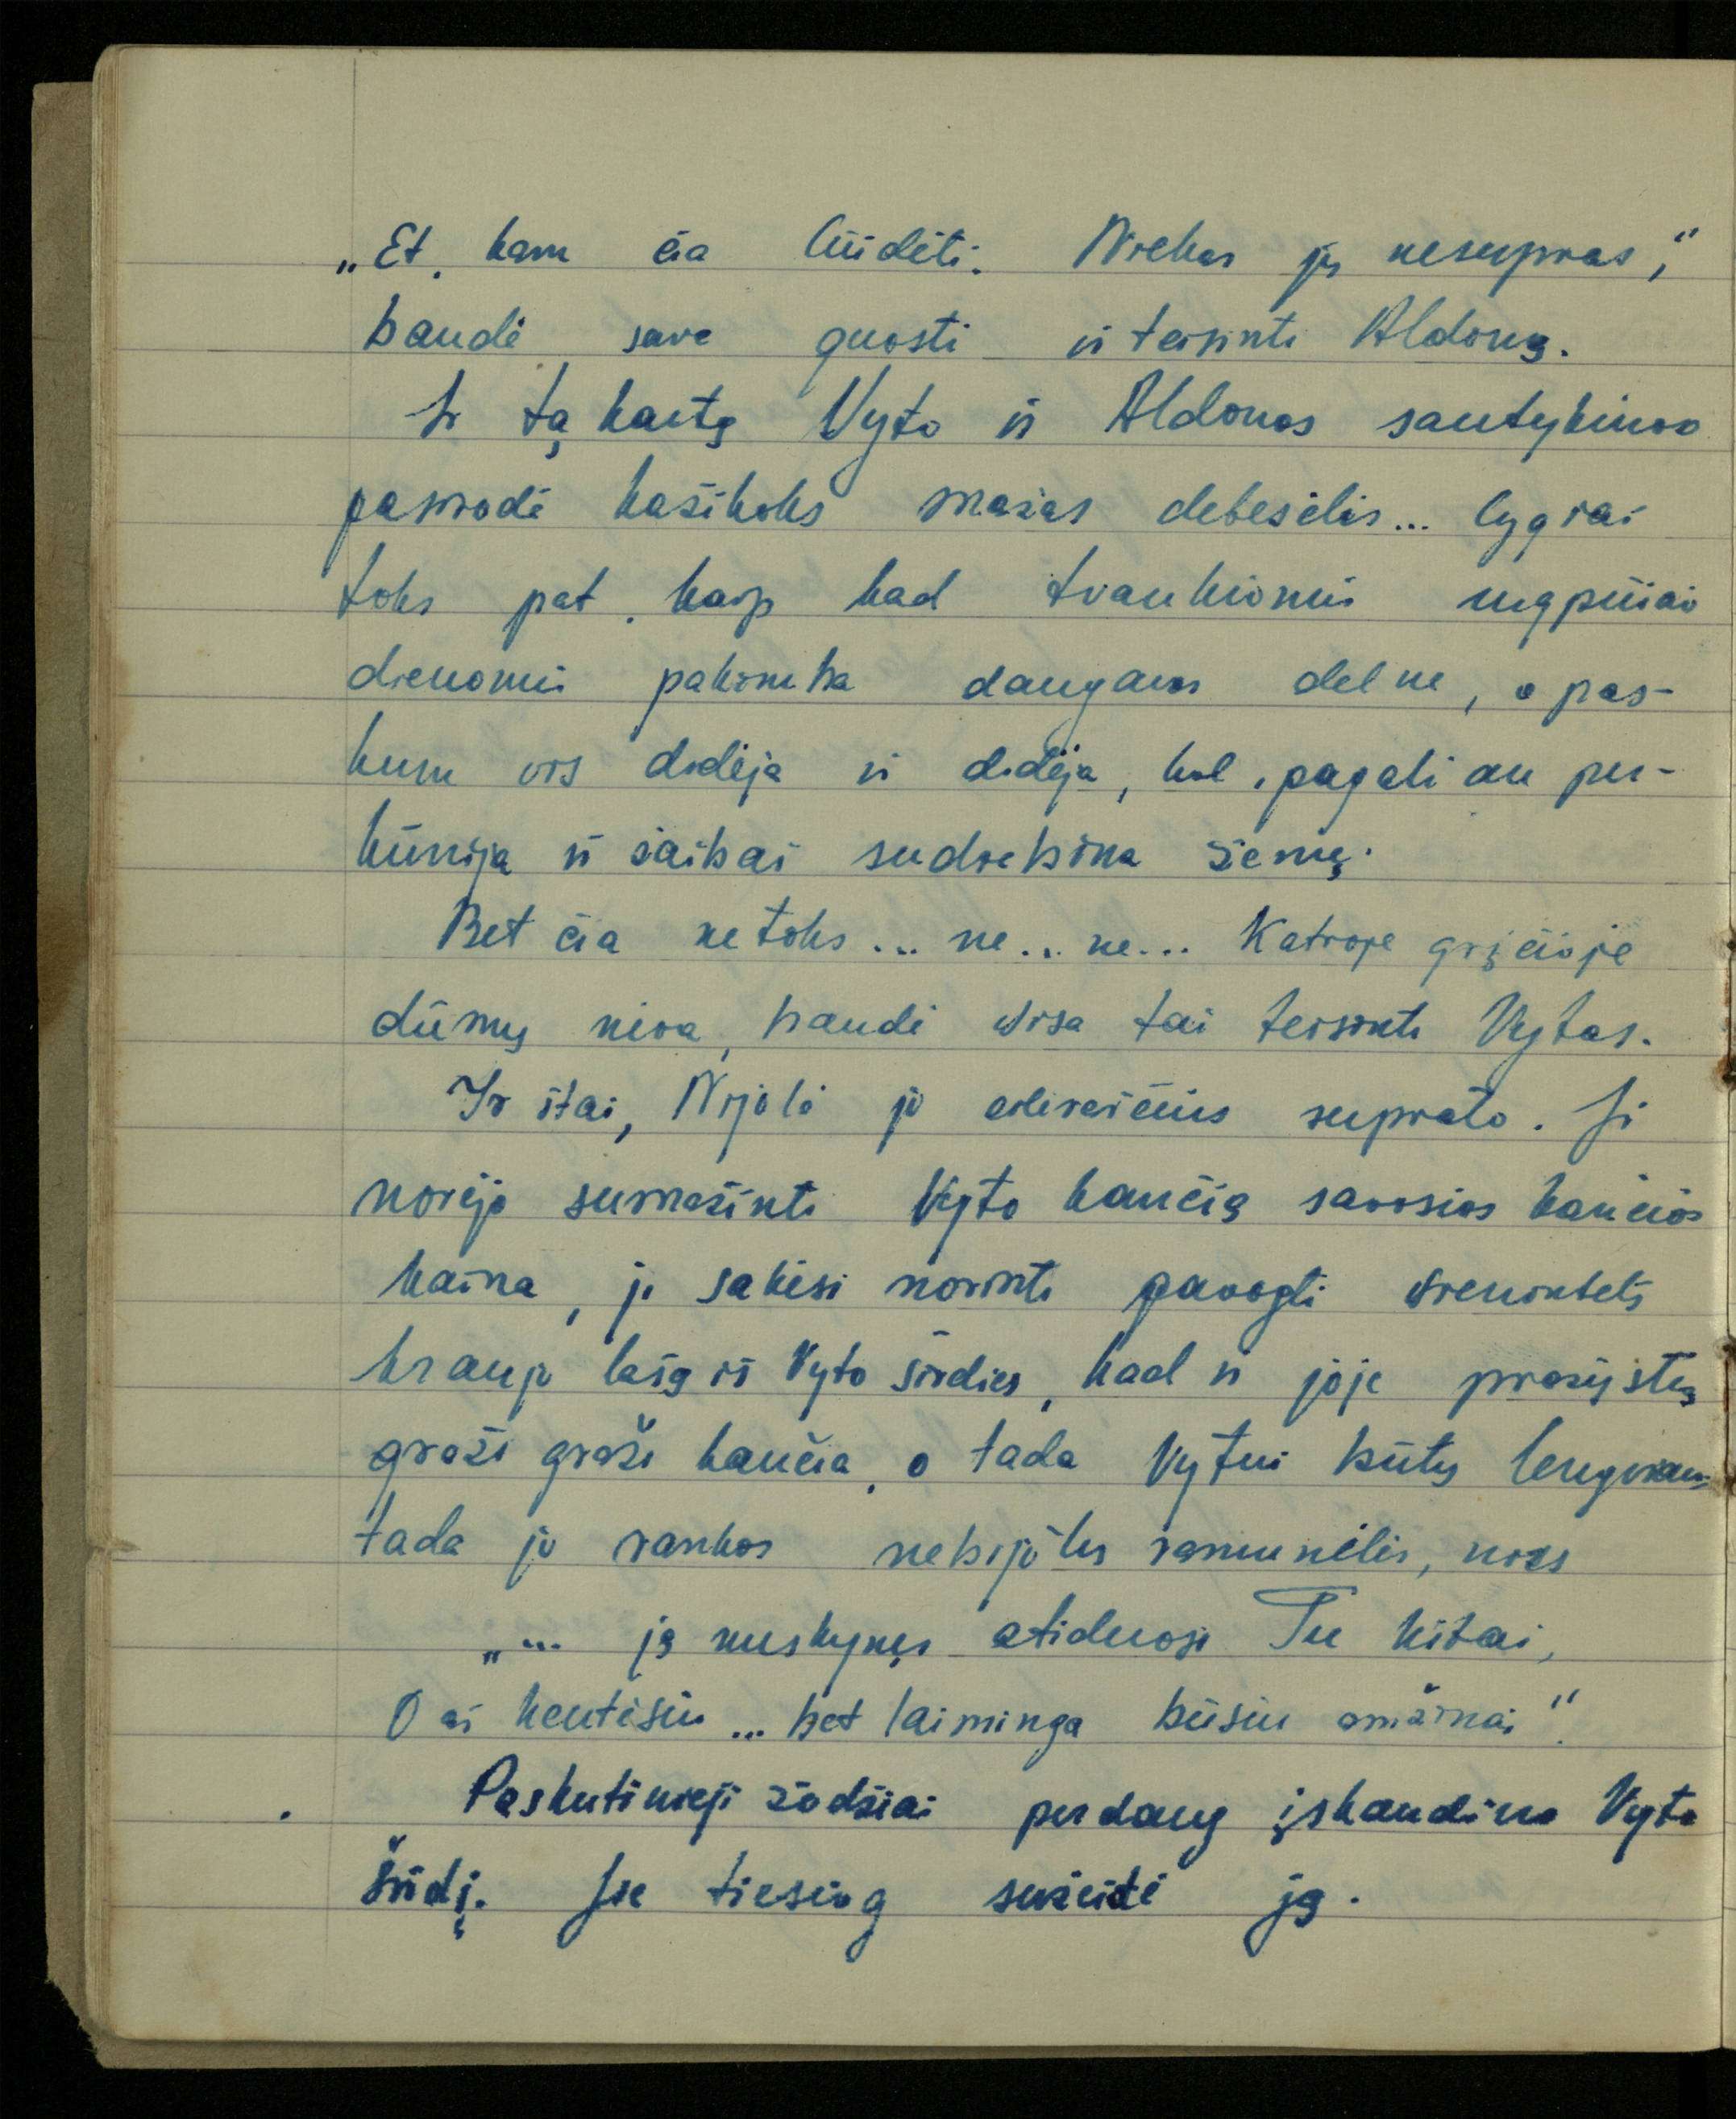 „Et, kam čia liūdėti. Niekas jų nesupras,“
bandė save guosti ir teisinti Aldoną.
Ir tą kartą Vyto ir Aldonos santykiuos
pasirodė kažikoks mažas debesėlis... lygiai
toks pat, kaip kad tvankiomis rugpiūčio
dienomis pakimba dangaus delne, o pas-
kum vis didėja ir didėja, kol pagaliau per-
kūnija ir žaibai sudrebina žemę.
Bet čia netoks... ne... ne... Katroje gričioje
dūmų nėra, bandė visa tai teisinti Vytas.
Ir štai, Nijolė jo eilėraščius suprato. Ji
norėjo sumažinti Vyto kančią savosios kančios
kaina, ji sakėsi norinti pavogti vienintelį
kraujo lašą iš Vyto širdies, kad ir joje pražystų
graži graži kančia, o tada Vytui būtų lengviau,
tada jo rankos nebijotų ramunėlis, nors
„... ją nuskynęs atiduosi Tu kitai,
O aš kentėsiu... bet laiminga būsiu amžinai“.
Paskutinieji žodžiai perdaug įskaudino Vyto
širdį. Jie tiesiog sužeidė ją.